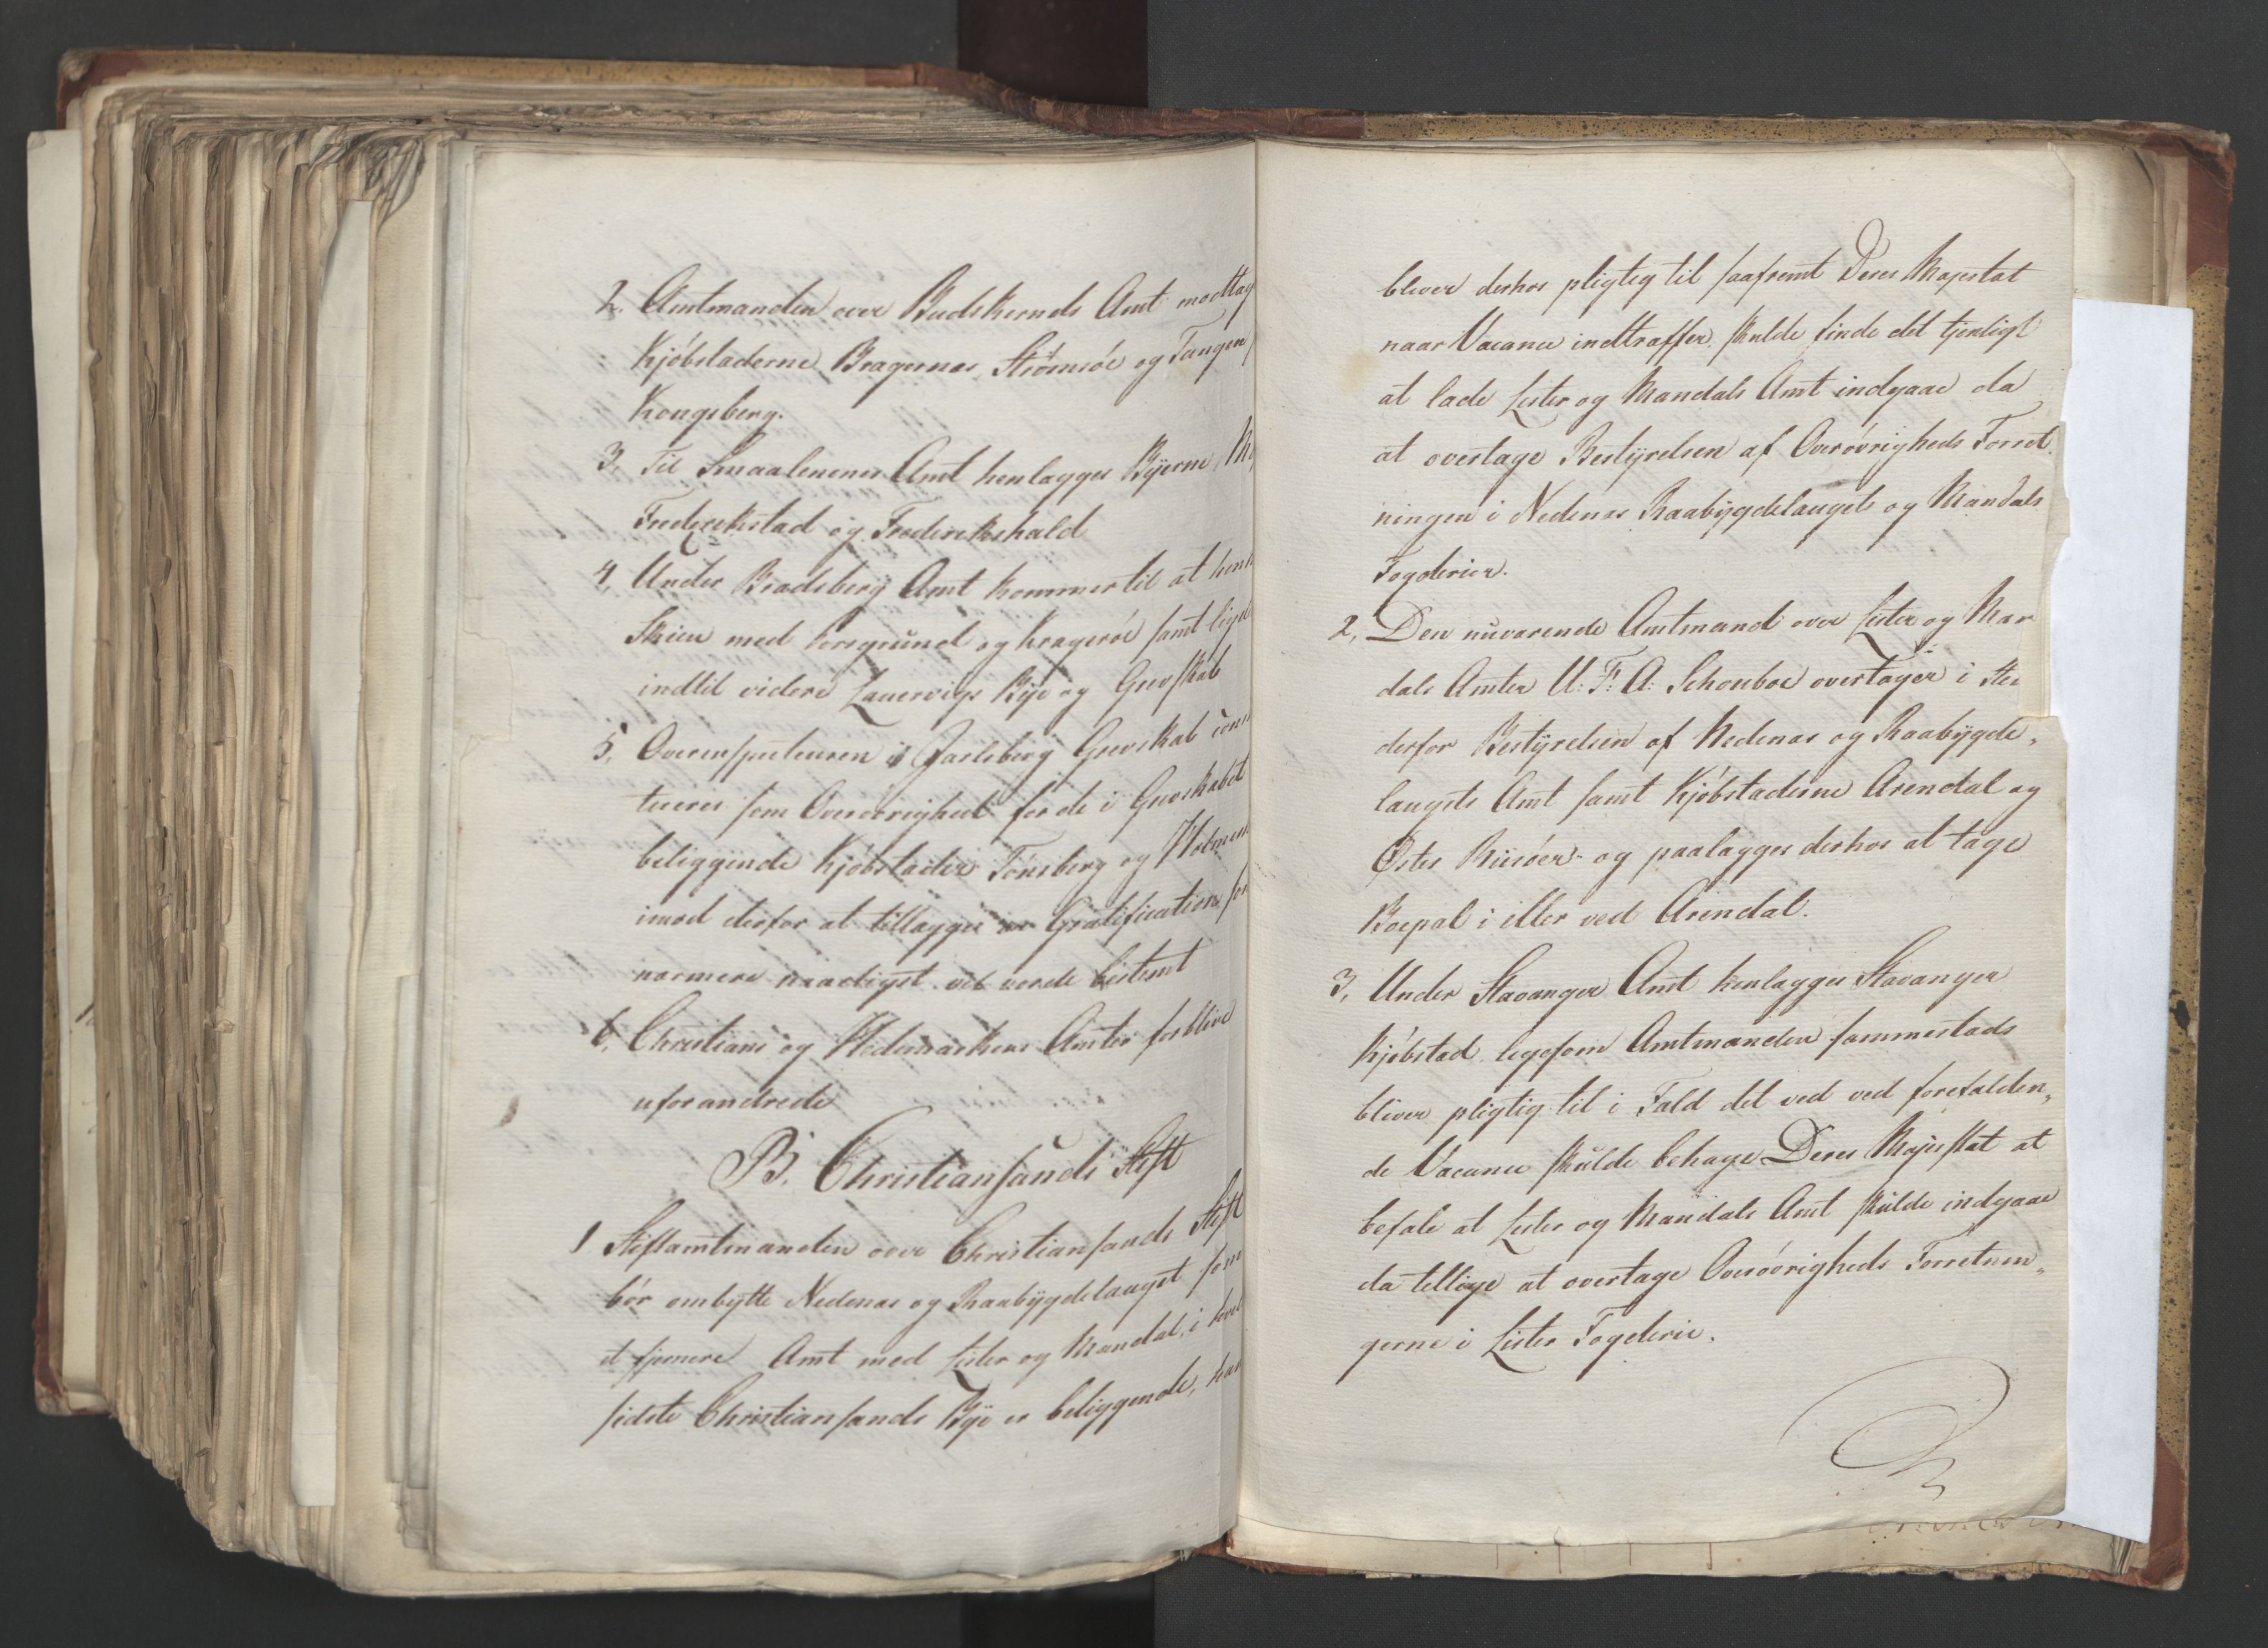 2. Amtmanden over Budskeruds Amt modtag
Kjöbstæderne Bragernæs, Strömsöe og Tangen
Kongsberg.
3, Til Smaalenenes Amt henlægges Byerne
Frederikstad og Frederikshald
4, Under Bradsberg Amt kommer til at hen
Skien med Porsgrund og Krageröe samt lige
indtil videre Laurvigs Bye og Grevskab
5, Overinspecteuren i Jarlsberg Grevskab con
tueres som Overövrighed for de i Grevskabet
beliggende Kjöbstæder Tönsberg og Holmen
imod derfor at tillægges en Gratification, som
nærmere naadigst vil vorde bestemt
6, Christians og Hedemarkens Amter forblive
uforandrede
B. Christiansands Stift
1 Stiftamtmanden over Christiansands Stift
bör ombytte Nedenæs og Raabygdelauget som
et fjernere Amt med Lister og Mandal, i hvil
sidste Christiansands Bye er beliggende, han
bliver derhos pligtig til saafremt Deres Majestæt
naar Vacance indtræffer, skulde finde det tjenligt
at lade Lister og Mandals Amt indgaae da
at overtage Bestyrelsen af Overövrigheds Forret
ningen i Nedenæs Raabygdelaugets og Mandals
Fogderier.
2, Den nuværende Amtmand over Lister og Man
dals Amter U: F: A: Schouboe overtager i Ste
derfor Bestyrelsen af Nedenæs og Raabygde„
laugets Amt samt Kjöbstæderne Arendal og
Öster Riisöer og paalægges derhos at tage
Boepæl i eller ved Arendal.
3, Under Stavanger Amt henlægges Stavanger
Kjöbstad ligesom Amtmanden sammestæds
bliver pligtig til i Fald det ved ved forefalden„
de Vacance skulde behage Deres Majestæt at
befale at Lister og Mandals Amt skulde indgaae
da tillige at overtage Overövrigheds Forretnin„
gerne i Lister Fogderie.